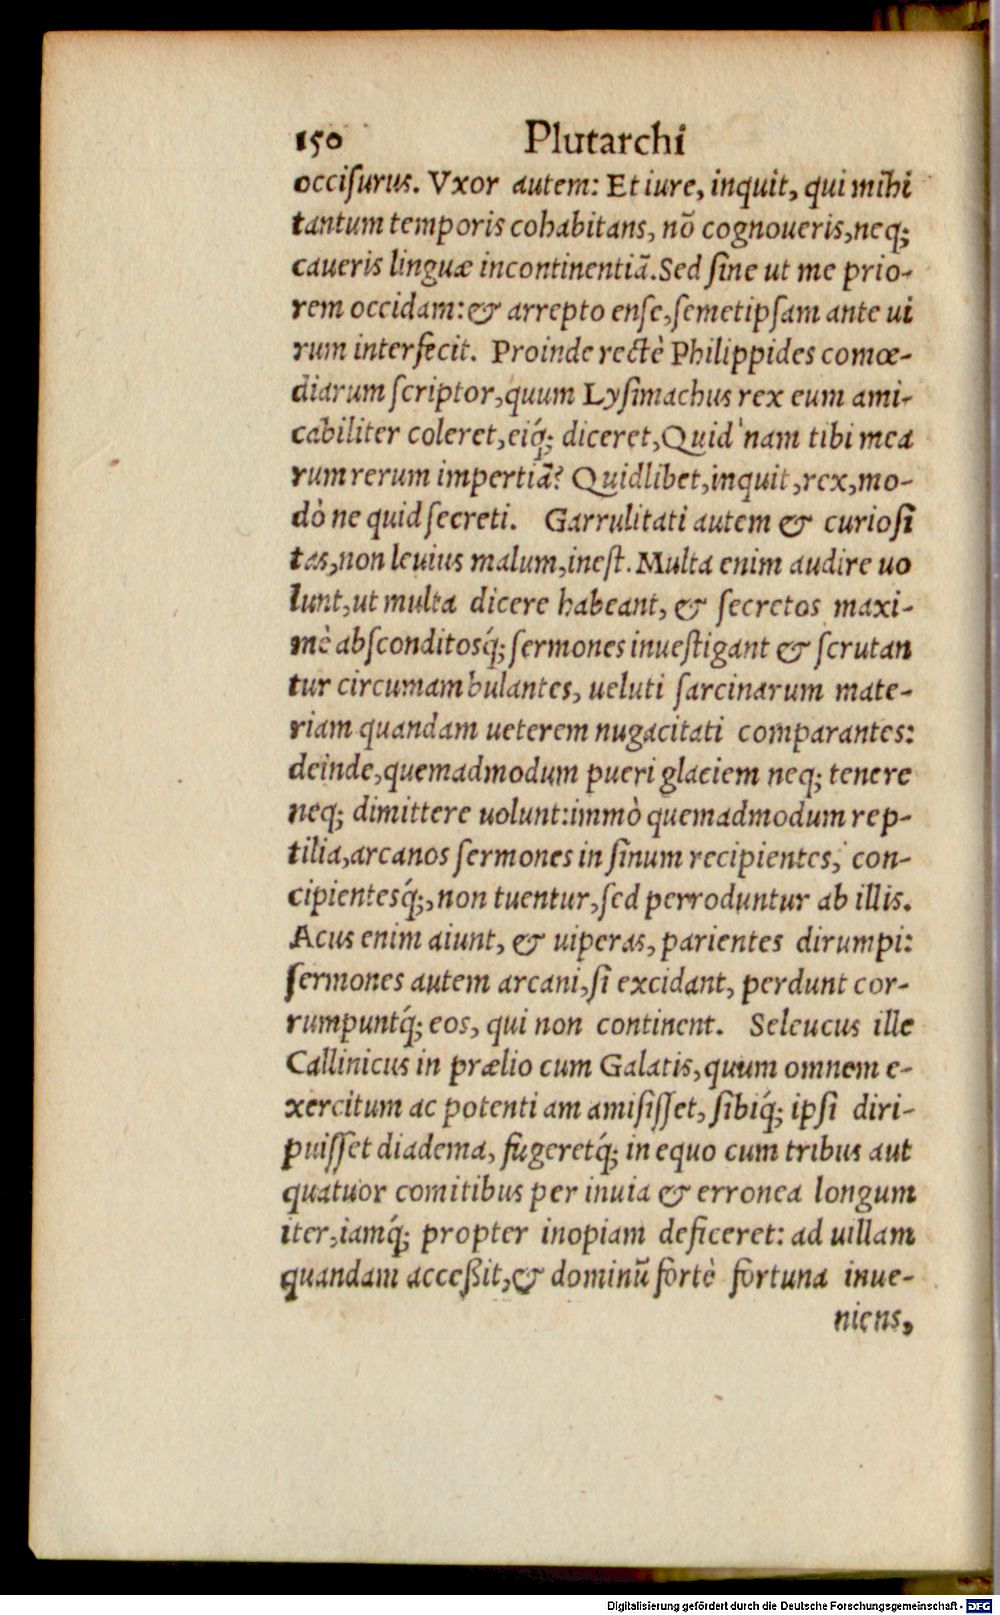 150 Plutarchi
occiſurus. Vxor autem: Et iure, inquit, qui mihi
tantum temporis cohabitans, nõ cognoueris, neq;
caueris linguæ incontinentiã. Sed ſine ut me prio-
rem occidam: & arrepto enſe, ſemetipſam ante ui
rum interfecit. Proinde rectè Philippides comœ-
diarum ſcriptor, quum Lyſimachus rex eum ami-
cabiliter coleret, eiq́; diceret, Quid'nam tibi mea
rum rerum impertiã? Quidlibet, inquit, rex, mo-
dò ne quid ſecreti. Garrulitati autem & curioſi
tas, non leuius malum, ineſt. Multa enim audire uo
lunt, ut multa dicere habeant, & ſecretos maxi-
mè abſconditosq́; ſermones inueſtigant & ſcrutan
tur circumambulantes, ueluti ſarcinarum mate-
riam quandam ueterem nugacitati comparantes:
deinde, quemadmodum pueri glaciem neq; tenere
neq; dimittere uolunt: immò quemadmodum rep-
tilia, arcanos ſermones in ſinum recipientes, con-
cipientesq́;, non tuentur, ſed perroduntur ab illis.
Acus enim aiunt, & uiperas, parientes dirumpi:
ſermones autem arcani, ſi excidant, perdunt cor-
rumpuntq́; eos, qui non continent. Seleucus ille
Callinicus in prælio cum Galatis, quum omnem e-
xercitum ac potentiam amiſiſſet, ſibiq́; ipſi diri-
puiſſet diadema, fugeretq́; in equo cum tribus aut
quatuor comitibus per inuia & erronea longum
iter, iamq́; propter inopiam deficeret: ad uillam
quandam acceßit, & dominũ fortè fortuna inue-
niens,
Digitalisierung gefördert durch die Deutsche Forschungsgemeinschaft - DFG